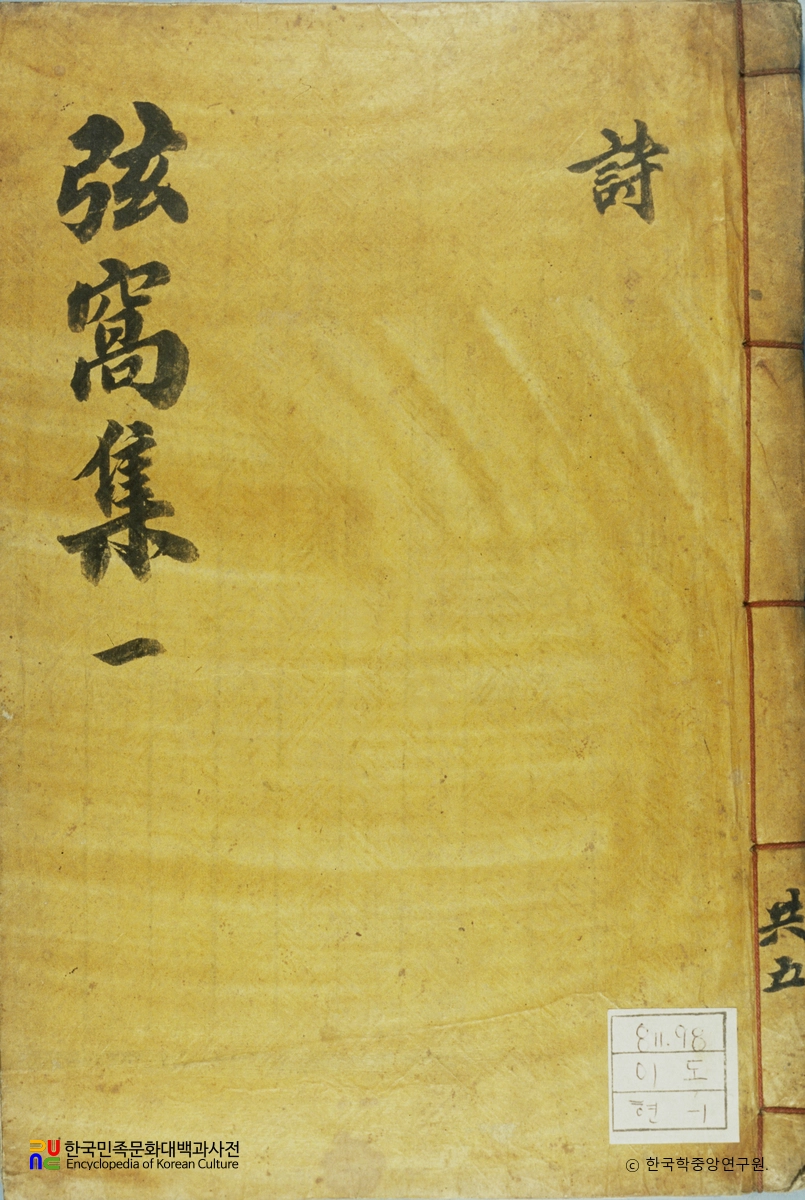 詩
弦窩集 一
共五
811.98
이 도
현 -1
한국민족문화대백과사전
Encyclopedia of Korean Culture
ⓒ 한국학중앙연구원.